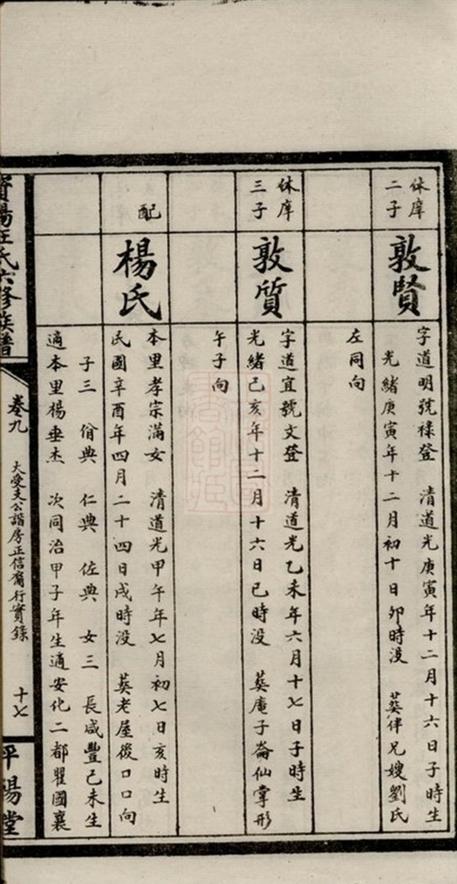 休庠
二子
敦賢
字道明號祿登　清道光庚寅年十二月十六日子時生
光緒庚寅年十二月初十日卯時没　葬伴兄嫂劉氏
左同向
休庠
三子
敦質
字道宜號文登　清道光乙未年六月十七日子時生
光緒己亥年十二月十六日巳時没　葬庵子崙仙掌形
午子向
配
楊氏
本里孝宗滿女　清道光甲午年七月初七日亥時生
民國辛酉年四月二十四日戌時没　葬老屋後口口向
子三　佾典　仁典　佐典　女三　長咸豐己未生
適本里楊垂杰　次同治甲子年生適安化二都瞿國襄
資陽汪氏六修族譜
卷九
大受支公諧房正信裔行實錄
十七
平陽堂